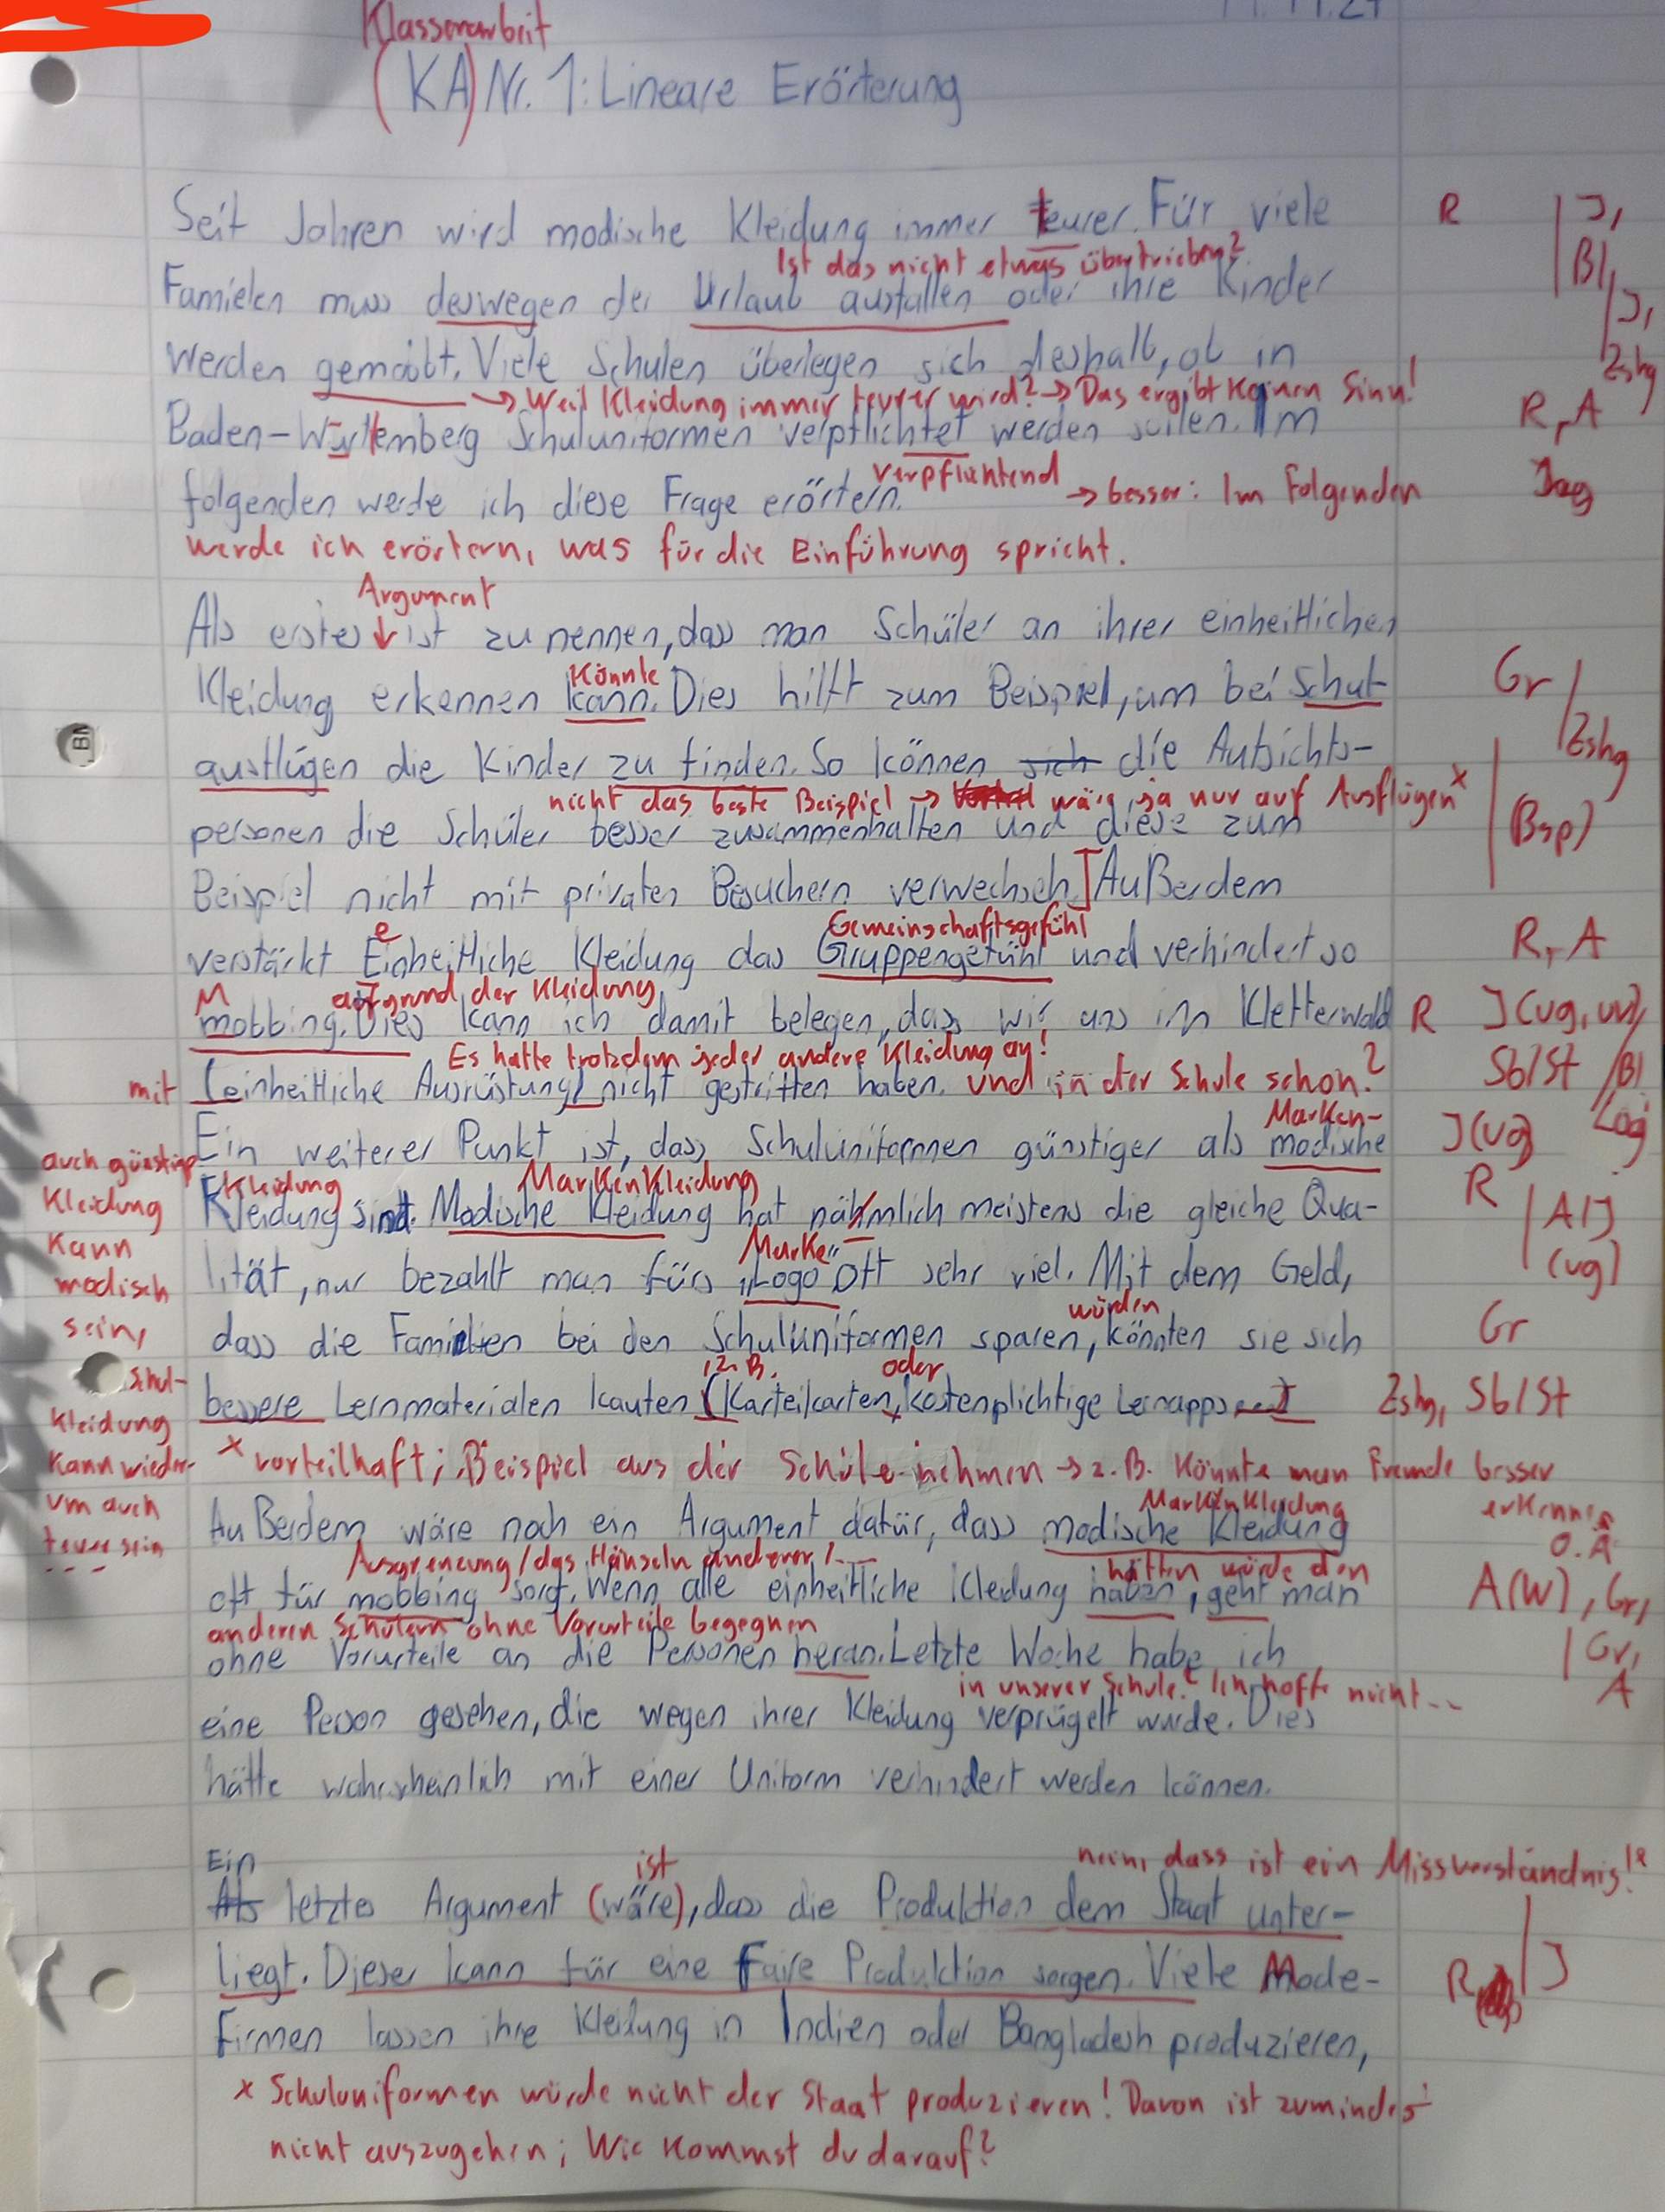 Klassenarbeit
(KA) Nr. 1: Lineare Erörterung
Seit Jahren wird modische Kleidung immer teurer. Für viele
R
J,
Bl,
Ist das nicht etwas übertrieben?
Famielen muss deswegen der Urlaub ausfallen oder ihre Kinder
J,
Zshg
werden gemobbt. Viele Schulen überlegen sich deshalb, ob in
→ Weil Kleidung immer teurer wird? → Das ergibt keinen Sinn!
Baden-Württemberg Schuluniformen verpflichtet werden sollen. Im
R, A
verpflichtend → besser: Im Folgenden
folgenden werde ich diese Frage erörtern.
werde ich erörtern, was für die Einführung spricht.
Argument
Als erstes ist zu nennen, dass man Schüler an ihrer einheitlichen
könnte
Kleidung erkennen kann. Dies hilft zum Beispiel, um bei Schul-
Gr
Zshg
ausflügen die Kinder zu finden. So können sich die Aufsichts-
nicht das beste Beispiel → wäre ja nur auf Ausflügen x
personen die Schüler besser zusammenhalten und diese zum
(Bsp)
Beispiel nicht mit privaten Besuchern verwechseln.] Außerdem
e Gemeinschaftsgefühl
verstärkt Einheitliche Kleidung das Gruppengefühl und verhindert so
R, A
M aufgrund der Kleidung
mobbing. Dies kann ich damit belegen, dass wir uns im Kletterwald
R J(ug, uv)
Es hatte trotzdem jeder andere Kleidung an!
mit (einheitliche Ausrüstung) nicht gestritten haben. und in der Schule schon?
Sb/St /Bl
Log
Marken-
Ein weiterer Punkt ist, dass Schuluniformen günstiger als modische
J(ug)
Kleidung Markenkleidung
Kleidung sind. Modische Kleidung hat nähmlich meistens die gleiche Qua-
R
A/J
(ug)
Marke
lität, nur bezahlt man fürs „Logo" oft sehr viel. Mit dem Geld,
würden
dass die Familien bei den Schuluniformen sparen, könnten sie sich
Gr
, z. B. oder
bessere Lernmaterialen kaufen (Karteikarten, kostenplichtige Lernapps
Zshg, Sb/St
auch günstige
Kleidung
kann
modisch
sein,
Schul-
kleidung
kann wieder-
um auch
teuer sein
x vorteilhaft; Beispiel aus der Schule nehmen → z. B. könnte man Freunde besser
erkennen
o.Ä
Markenkleidung
Außerdem wäre noch ein Argument dafür, dass modische Kleidung
Ausgrenzung / das Hänseln anderer hätten würde den
oft für mobbing sorgt. Wenn alle einheitliche Kleidung haben, geht man
A(W), Gr,
anderen Schülern ohne Vorurteile begegnen
ohne Vorurteile an die Personen heran. Letzte Woche habe ich
Gr,
A
in unserer Schule? Ich hoffe nicht...
eine Person gesehen, die wegen ihrer Kleidung verprügelt wurde. Dies
hätte wahrscheinlich mit einer Uniform verhindert werden können.
Ein ist nein, dass ist ein Missverständnis!
Als letztes Argument (wäre), dass die Produktion dem Staat unter-
liegt. Dieser kann für eine Faire Produktion sorgen. Viele Mode-
R
J
Firmen lassen ihre Kleidung in Indien oder Bangladesh produzieren,
x Schuluniformen würde nicht der Staat produzieren! Davon ist zumindest
nicht auszugehen; Wie kommst du darauf?